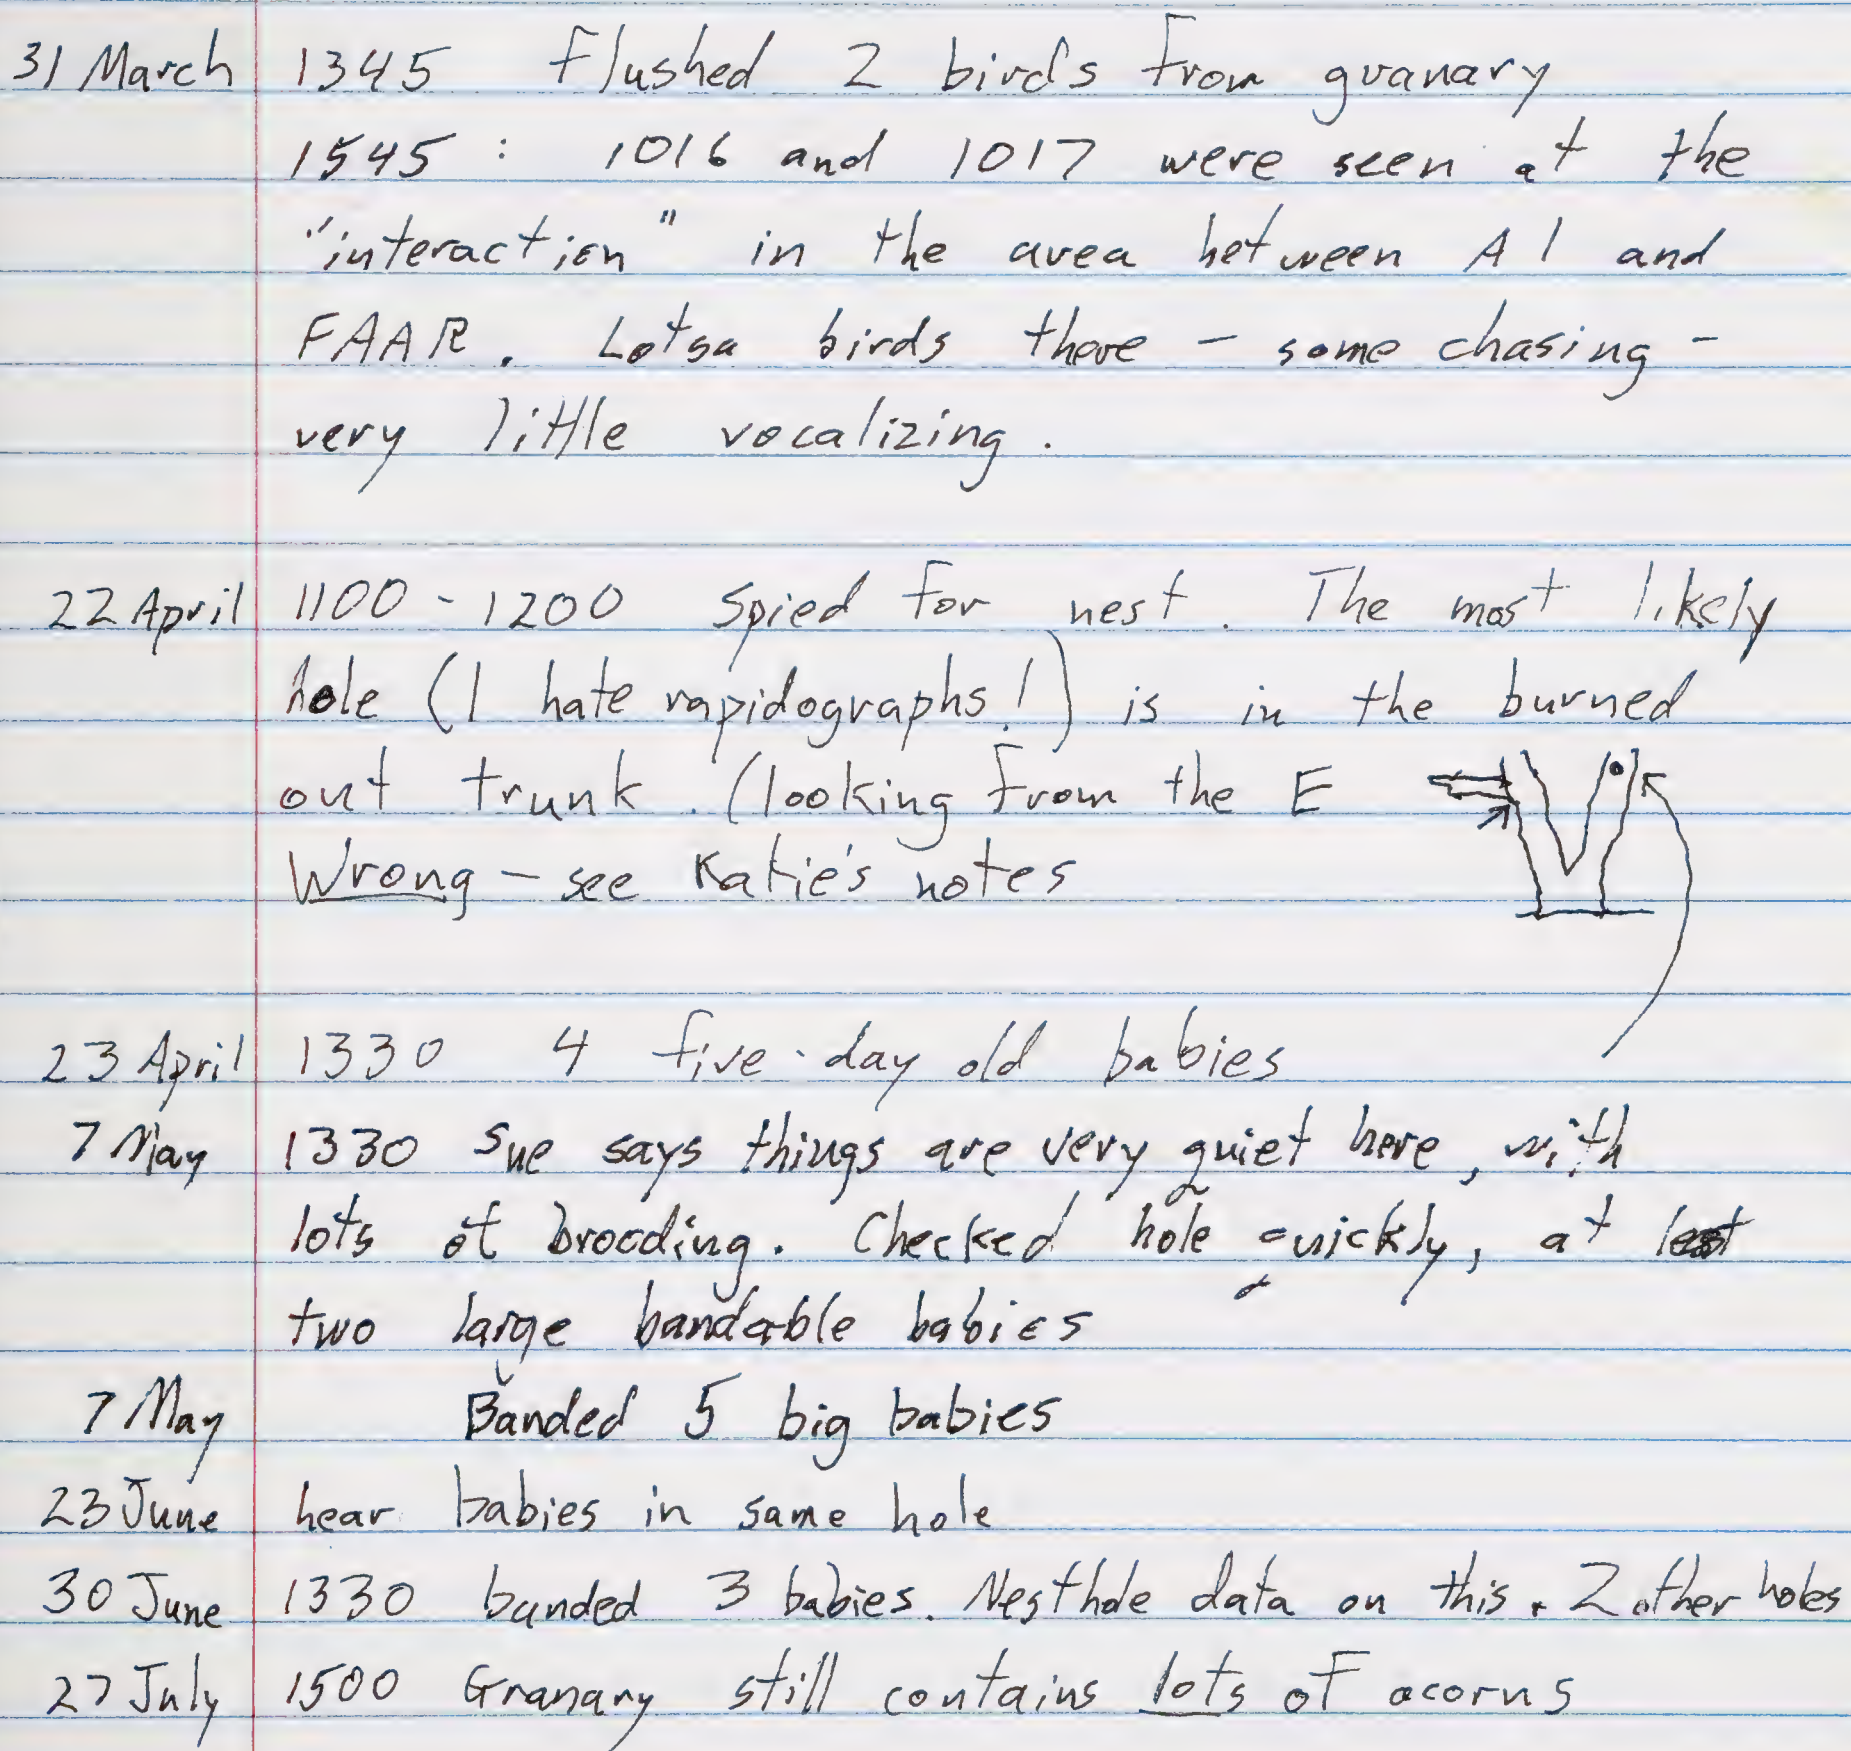 31 March 1345 Flushed 2 birds from granary
1545 : 1016 and 1017 were seen at the
"interaction" in the area between A1 and
FAAR. Lotsa birds there - some chasing -
very little vocalizing.
22 April 1100 - 1200 Spied for nest. The most likely
hole (I hate rapidographs!) is in the burned
out trunk. (looking from the E
Wrong - see Katie's notes
23 April 1330 4 five-day old babies
7 May 1330 Sue says things are very quiet here, with
lots of brooding. Checked hole quickly, at least
two large bandable babies
7 May Banded 5 big babies
23 June hear babies in same hole
30 June 1330 banded 3 babies. Nesthole data on this + 2 other holes
27 July 1500 Granary still contains lots of acorns